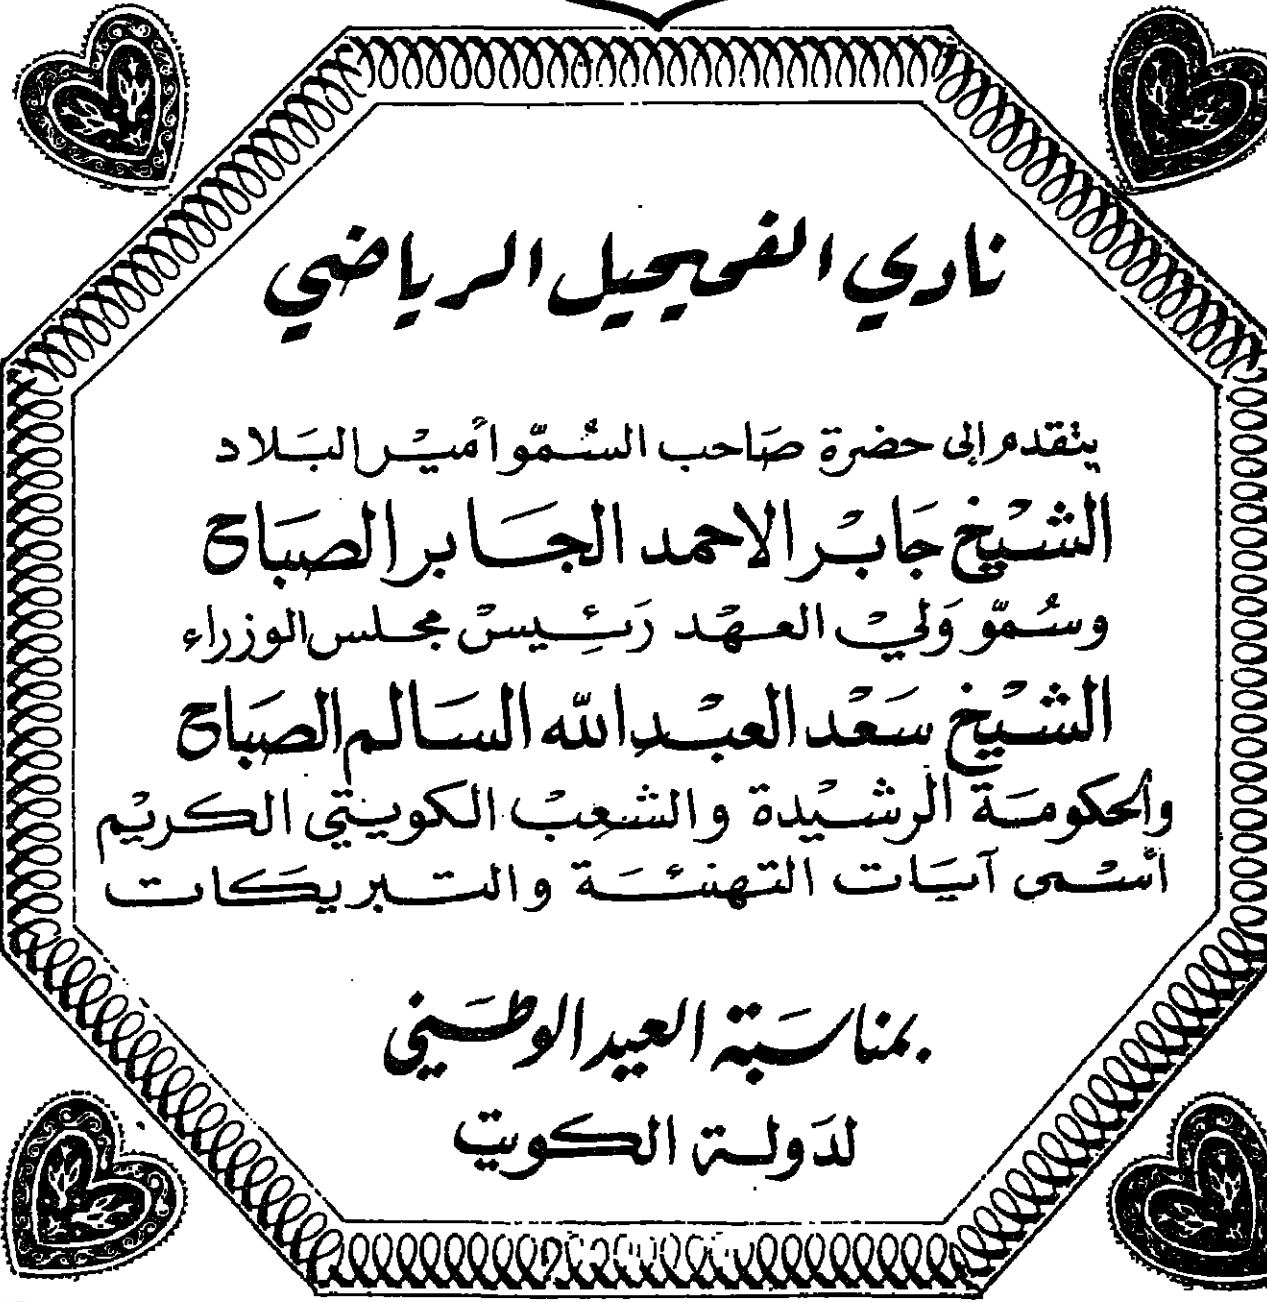 نادي الفحيحيل الرياضي
يتقدم إلى حضرة صاحب السمو أمير البلاد
الشيخ جابر الاحمد الجابر الصباح
وسمو ولي العهد رئيس مجلس الوزراء
الشيخ سعد العبدالله السالم الصباح
والحكومة الرشيدة والشعب الكويتي الكريم
أسمى آيات التهنئة والتبريكات
بمناسبة العيد الوطني
لدولة الكويت